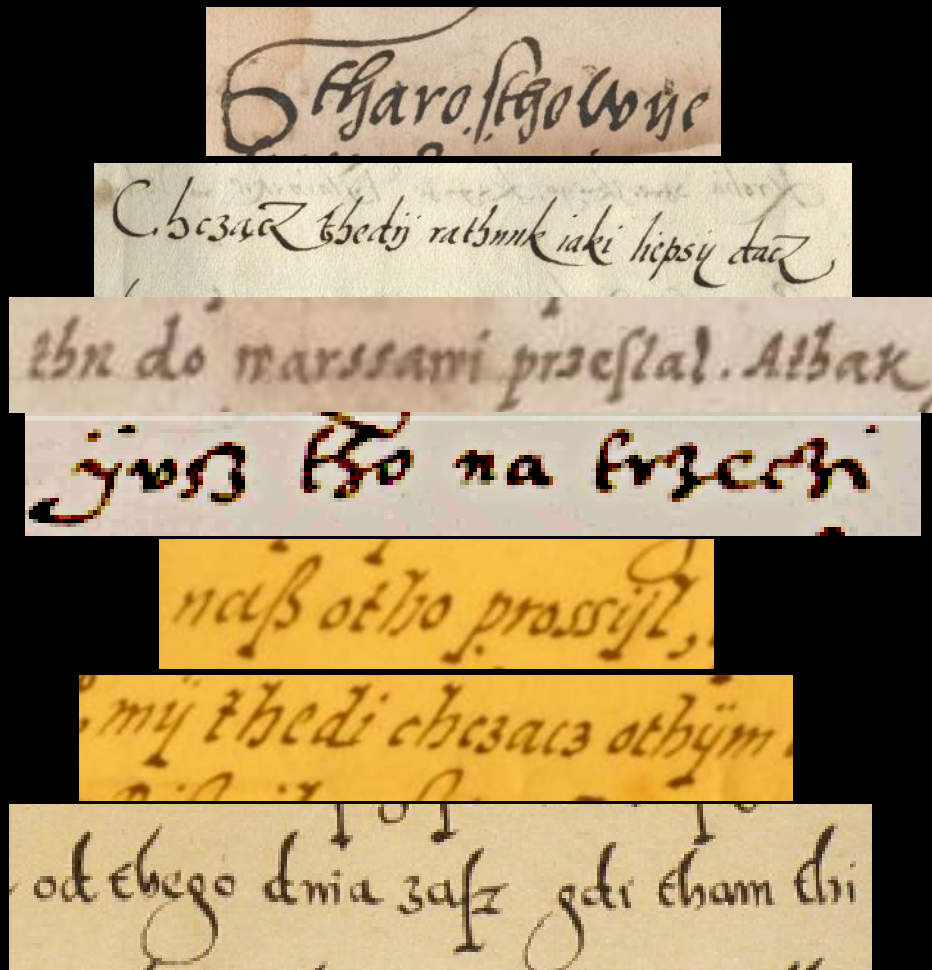 Stharosthowije
Chczącz thedij rathunk iaki liepsij dacz
thn do warssawi przeslal. Athak
ijvsz tho na trzeczi
naß otho prossijl,
mij thedi chczacz othijm
od thego dnia zasz gdi tham thi